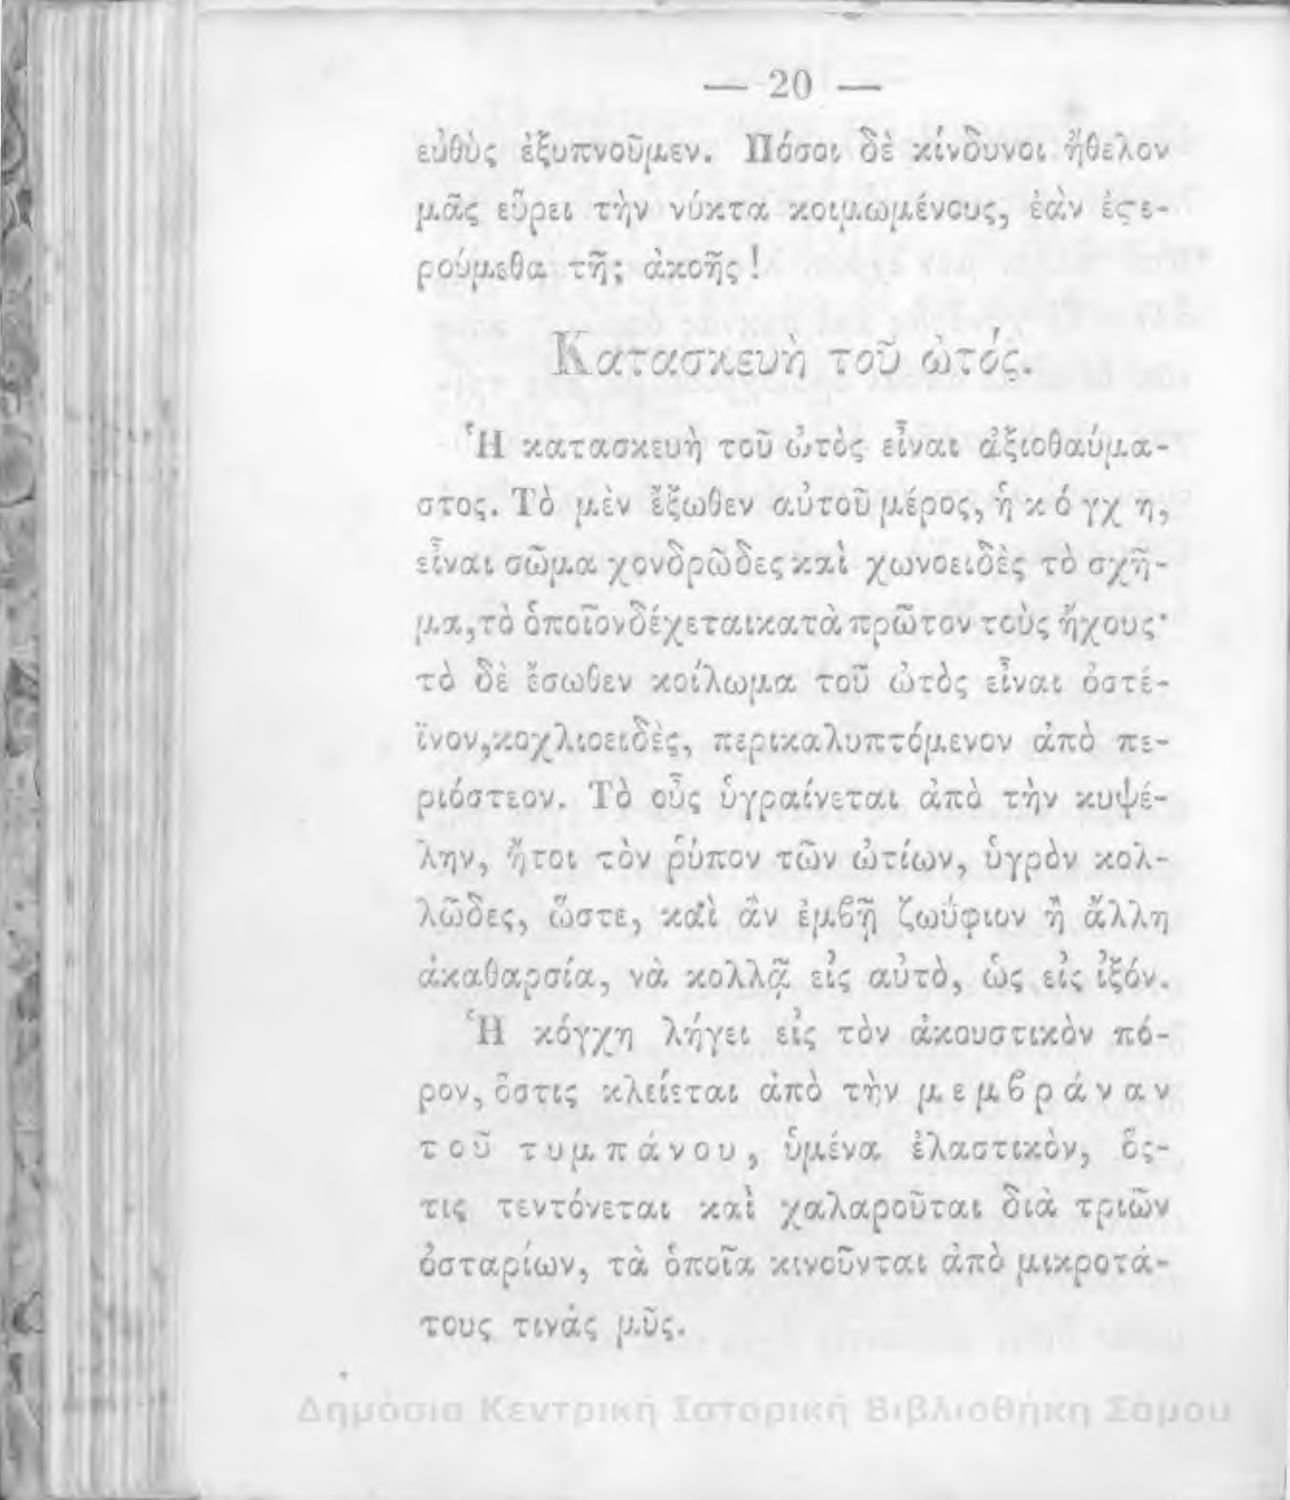 — 20 —
εὐθὺς ἐξυπνοῦμεν. Πόσοι δὲ κίνδυνοι ἤθελον
μᾶς εὕρει τὴν νύκτα κοιμωμένους, ἐὰν ἐϛε-
ρούμεθα τῆς ἀκοῆς!
Κατασκευὴ τοῦ ὠτός.
Ἡ κατασκευὴ τοῦ ὠτὸς εἶναι ἀξιοθαύμα-
στος. Τὸ μὲν ἔξωθεν αὐτοῦ μέρος, ἡ κόγχη,
εἶναι σῶμα χονδρῶδες καὶ χωνοειδὲς τὸ σχῆ-
μα, τὸ ὁποῖον δέχεται κατὰ πρῶτον τοὺς ἤχους·
τὸ δὲ ἔσωθεν κοίλωμα τοῦ ὠτὸς εἶναι ὀστέ-
ϊνον, κοχλιοειδὲς, περικαλυπτόμενον ἀπὸ πε-
ριόστεον. Τὸ οὖς ὑγραίνεται ἀπὸ τὴν κυψέ-
λην, ἤτοι τὸν ῥύπον τῶν ὠτίων, ὑγρὸν κολ-
λῶδες, ὥστε, καὶ ἂν ἐμβῇ ζωΰφιον ἢ ἄλλη
ἀκαθαρσία, νὰ κολλᾷ εἰς αὐτὸ, ὡς εἰς ἰξόν.
Ἡ κόγχη λήγει εἰς τὸν ἀκουστικὸν πό-
ρον, ὅστις κλείεται ἀπὸ τὴν μεμβράναν
τοῦ τυμπάνου, ὑμένα ἐλαστικὸν, ὅς-
τις τεντόνεται καὶ χαλαροῦται διὰ τριῶν
ὀσταρίων, τὰ ὁποῖα κινοῦνται ἀπὸ μικροτά-
τους τινὰς μῦς.
Δημόσια Κεντρική Ιστορική Βιβλιοθήκη Σάμου